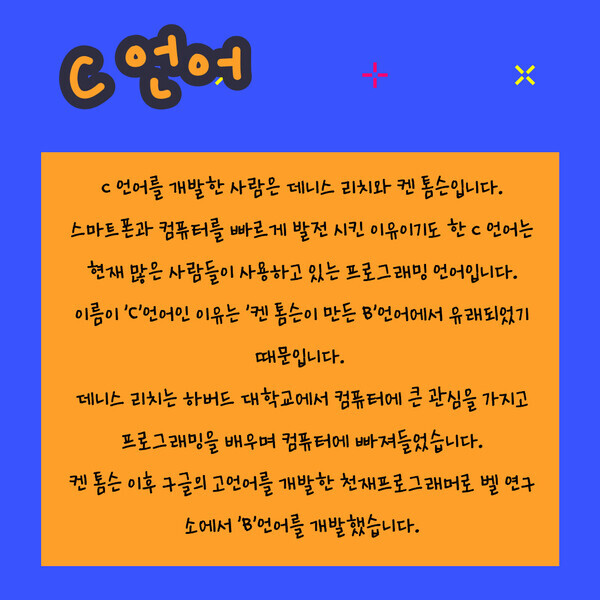 C 언어
C 언어를 개발한 사람은 데니스 리치와 켄 톰슨입니다.
스마트폰과 컴퓨터를 빠르게 발전 시킨 이유이기도 한 C 언어는
현재 많은 사람들이 사용하고 있는 프로그래밍 언어입니다.
이름이 'C'언어인 이유는 '켄 톰슨이 만든 B'언어에서 유래되었기
때문입니다.
데니스 리치는 하버드 대학교에서 컴퓨터에 큰 관심을 가지고
프로그래밍을 배우며 컴퓨터에 빠져들었습니다.
켄 톰슨 이후 구글의 고언어를 개발한 천재프로그래머로 벨 연구
소에서 'B'언어를 개발했습니다.